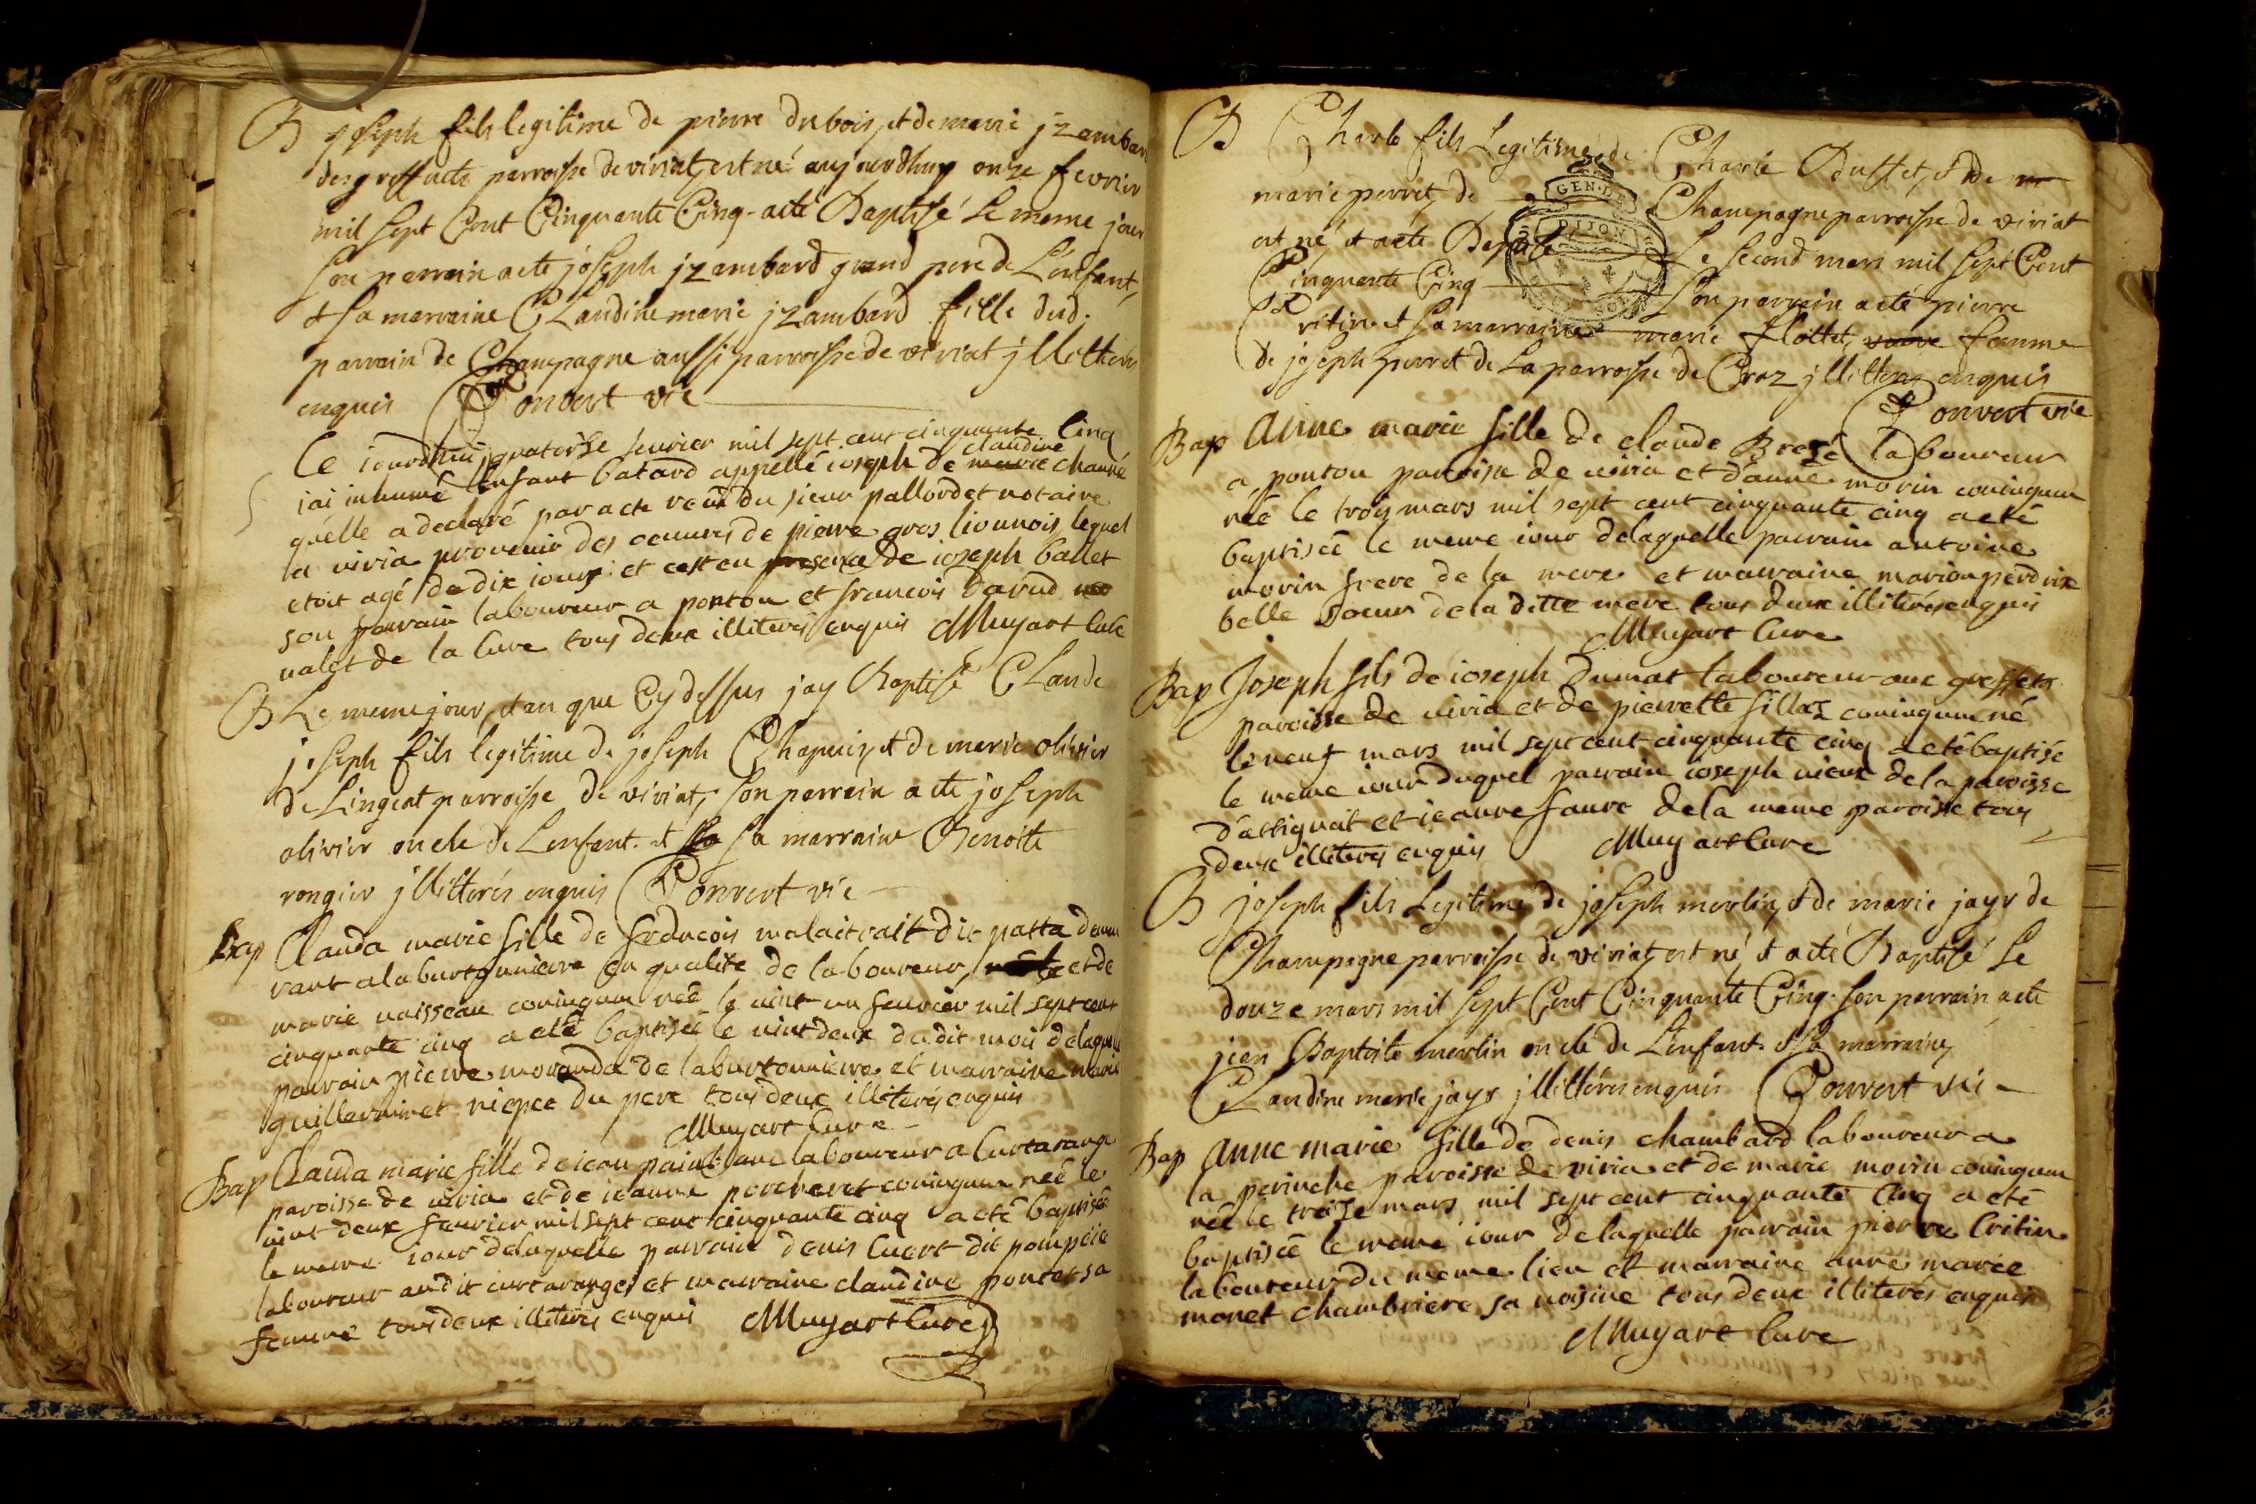 B joseph fils legitime de pierre dubois, et de marie jzambard
des greffuets parroisse de viriat, est né aujourdhuy onze fevrier
mil sept Cent Cinquante Cinq. a eté Baptisé Le meme jour
son parrain a eté joseph jzambard grand pere de L'enfant,
et sa marraine CLaudine marie jzambard fille dud.
parrain de Champagne aussi parroisse de viriat jllitterés
enquis Convert vic
Ce iourdhui quatorse fevrier mil sept cent cinquante cinq
claudine
iai inhumé lenfant batard appellé ioseph de marie channé
quelle a declaré par acte reçu du sieur pallordet notaire
a viria provenir des oeuvres de pierre gros lionnois lequel
etoit agé de dix iours et cest en presence de ioseph ballet
son parrain laboureur a ponton et francois darud
valet de la Cure tous deux illiterés enquis Muyart Curé
B Le meme jour, et an que Cy dessus jay Baptisé CLaude
joseph fils legitime de joseph Chapuis, et de marie olivier
de Lingeat parroisse de viriat, son parrain a eté joseph
olivier oncle de Lenfant. et sa marraine Benoite
rongier jllitterés enquis Convert vic
Bap Clauda marie fille de francois malaitrait dit patta demeu
rant a la burtonniere en qualité de laboureur, et de
marie vaisseau coniugum née le vint un fevrier mil sept cent
cinquante cinq a eté baptisée le vint deux du dit mois de laquelle
parrain pierre moranda de la burtonniere et marraine marie
guillerminet niepce du pere tous deux illiterés enquis
Muyart Cure
Bap Clauda marie fille de iean painblanc laboureur a Curtaranges
paroisse de viria et de ieanne percheret coniugum née le
vint deux fevrier mil sept cent cinquante cinq a eté baptisée
le meme iour de laquelle parrain denis Cuert dit pompée
laboureur au dit curtaranges et marraine claudine poncet sa
femme tous deux illiterés enquis Muyart Cure
B Charle fils Legitime de Charle Buffet, et de
marie perret, de Champagne parroisse de viriat
GEN. D
DIJON
est né et a eté Baptisé Le second mars mil sept Cent
Cinquante Cinq son parrain a eté pierre
Critin et sa marraine marie flottet, femme
de joseph perret de La parroisse de Craz jllitterés enquis
Convert vic
Bap Anne marie fille de claude Bresé laboureur
a ponton paroisse de viria et d'anne morin coniugum
née le trois mars mil sept cent cinquante cinq a eté
baptisée le meme iour de laquelle parrain antoine
morin frere de la mere et marraine marion perdrix
belle soeur de la ditte mere tous deux illiterés enquis
Muyart Cure
Bap Joseph fils de ioseph dumat laboureur aux greffets
paroisse de viria et de pierrette fillaz coniugum né
le neuf mars mil sept cent cinquante cinq a eté baptisé
le meme iour duquel parrain ioseph vieux de la paroisse
d'attignat et ieanne faure de la meme paroisse tous
deux illiterés enquis Muyart Cure
B joseph fils Legitime de joseph merlin, et de marie jayr de
Champagne parroisse de viriat, est né et a eté Baptisé Le
douze mars mil sept Cent Cinquante Cinq. son parrain a eté
jean Baptiste merlin oncle de Lenfant. et sa marraine
CLaudine marie jayr jllitterés enquis Convert vic
Bap Anne marie fille de denis chambard laboureur a
la perinche paroisse de viria et de marie morin coniugum
née le treise mars mil sept cent cinquante cinq a eté
baptisée le meme iour de laquelle parrain pierre Critin
laboureur du meme lieu et marraine anne marie
monet chambriere sa voisine tous deux illiterés enquis
Muyart Cure